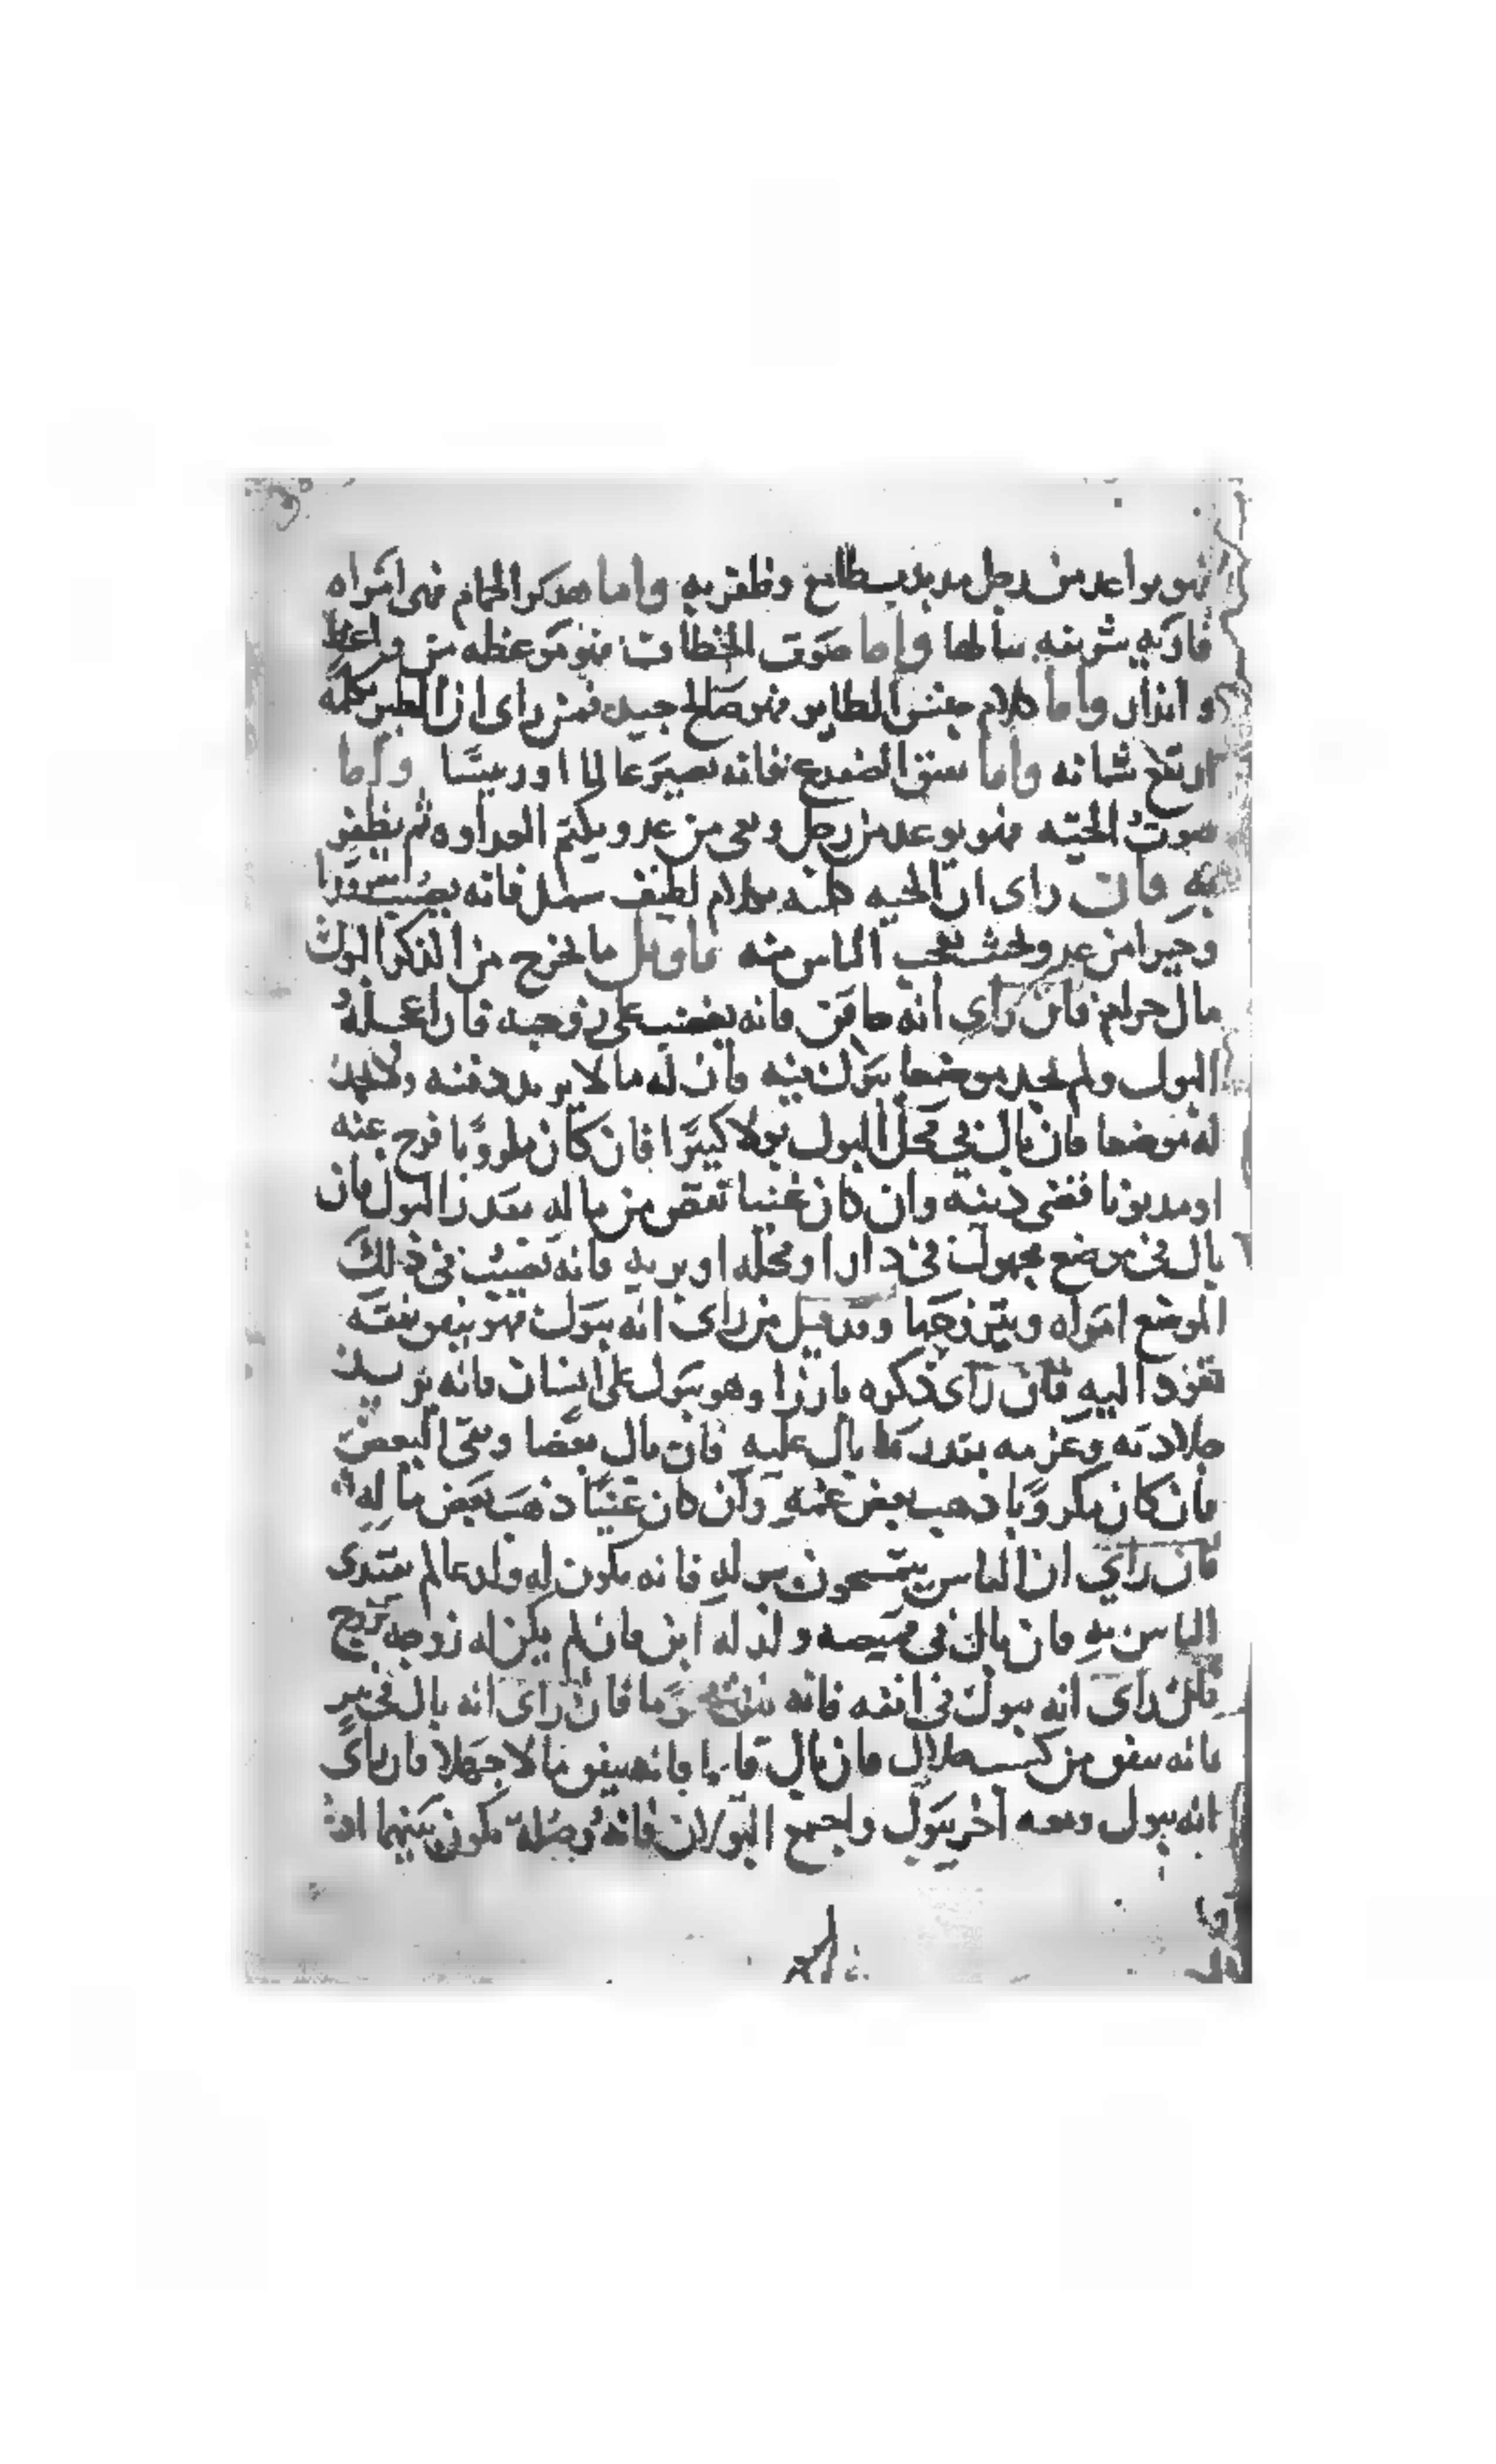 فهو تواعد من رجل مذبذب طامع وظفر به واما هدير الحمام فهى امراه
قاريه شريفه مسالمه واما صوت الخطاف فهو موعظه من واعظ
و انذار واما كلام جنس الطاير فهو صالح جيد فمن راى ان الطير تكلمه
ارتفع شانه واما نقيق الضفدع فانه يصير عالما او رييسا واما
صوت الحيه فهو توعد من رجل وهى من عدو يكتم العداوه ثم يظفر
به فان راى ان الحيه كلمته بكلام لطيف سهل فانه يصيب سرورا
وخيرا من عدو بحيث تعجب الناس منه تاويل ما يخرج من الذكر البول
مال حرام فان راى انه حاقن فانه يغضب على زوجته فان اعجله
البول ولم يجد موضعا يبول فيه فان له مالا يريد دفنه ولا يجد
له موضعا فان بال فى محل البول بولا كثيرا فان كان مكروبا فرج عنه
او مديونا قضى دينه وان كان غنيا نقص من ماله بقدر البول فان
بال فى موضع مجهول فى دار او محله او بريه فانه نصيب فى ذلك
الموضع امراه ويتزوجها وقد قيل من راى انه يبول فهو ينفق نفقه
تعود اليه فان راى ذكره بارزا وهو يبول على انسان فانه
جلادته وعزمه بقدر ما بال عليه فان بال بعضا وبقى البعض
فان كان مكروبا ذهب بعض غمه وان كان غنيا ذهب بعض ماله
فان راى ان الناس يتمسحون ببوله فانه يكون له ولد عالم يقتدى
الناس به فان بال فى قميصه ولد له ابن فان لم يكن له زوجه تزوج
فان راى انه يبول فى انفه فانه فان راى انه بال فى بير
فانه ينفق من كسب حلال فان بال قايما فانه ينفق مالا جهلا فان راى
انه يبول ومعه آخر يبول واجتمع البولان فانه وصله تكون بينهما